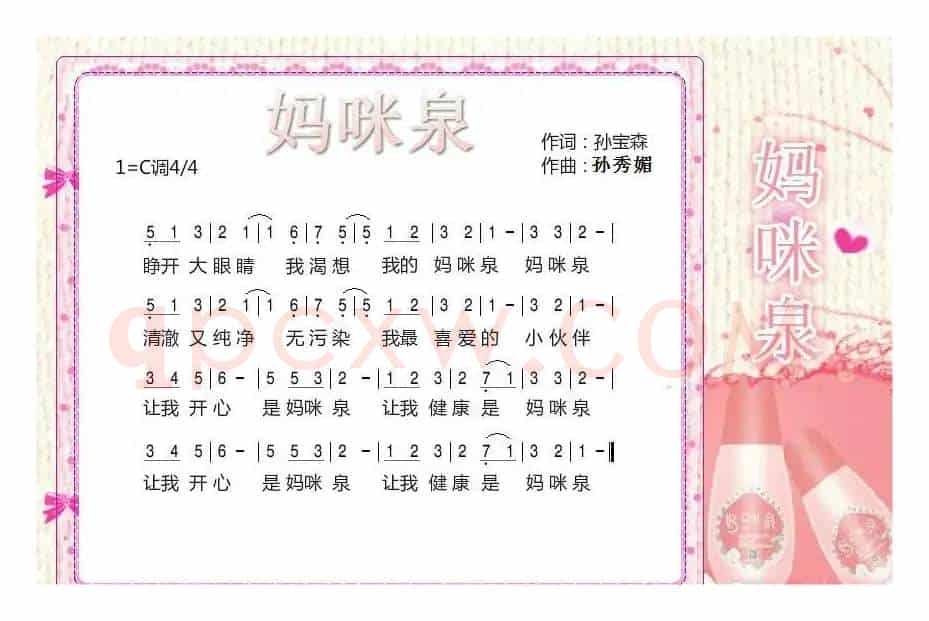 妈咪泉
作词：孙宝森
1=C调4/4
作曲：孙秀媚
5 1 3|2 1 1|1 6|7 5|5 1 2|3 2|1 -|3 3|2 -|
睁开 大眼睛 我渴想 我的 妈咪泉 妈咪泉
5 1 3|2 1 1|1 6|7 5|5 1 2|3 2|1 -|3 3|2 -|
清澈 又纯净 无污染 我最 喜爱的 小伙伴
3 4 5|6 -|5 5 3|2 -|1 2 3|2 7 1|3 3|2 -|
让我 开心 是妈咪泉 让我 健康是 妈咪泉
3 4 5|6 -|5 5 3|2 -|1 2 3|2 7 1|3 2|1 -‖
让我 开心 是妈咪泉 让我 健康是 妈咪泉
qpcxw.COM
妈
咪
泉
妈咪泉